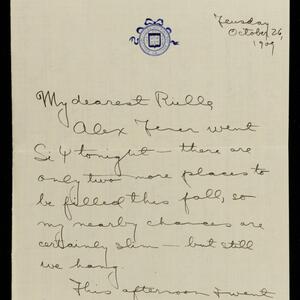 Tuesday
October 26,
1909
My dearest
Alex went
Si 4 tonight — there are
only two more places to
be filled this fall, so
my nearby chances are
certainly slim — but still
we hang.
This afternoon I went